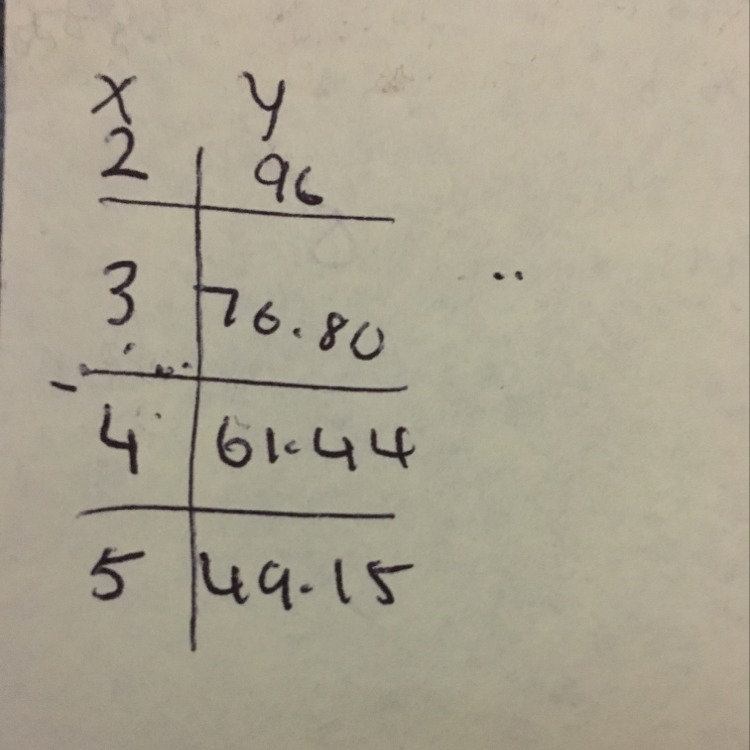 x y
2 96
3 76.80
4 61.44
5 49.15